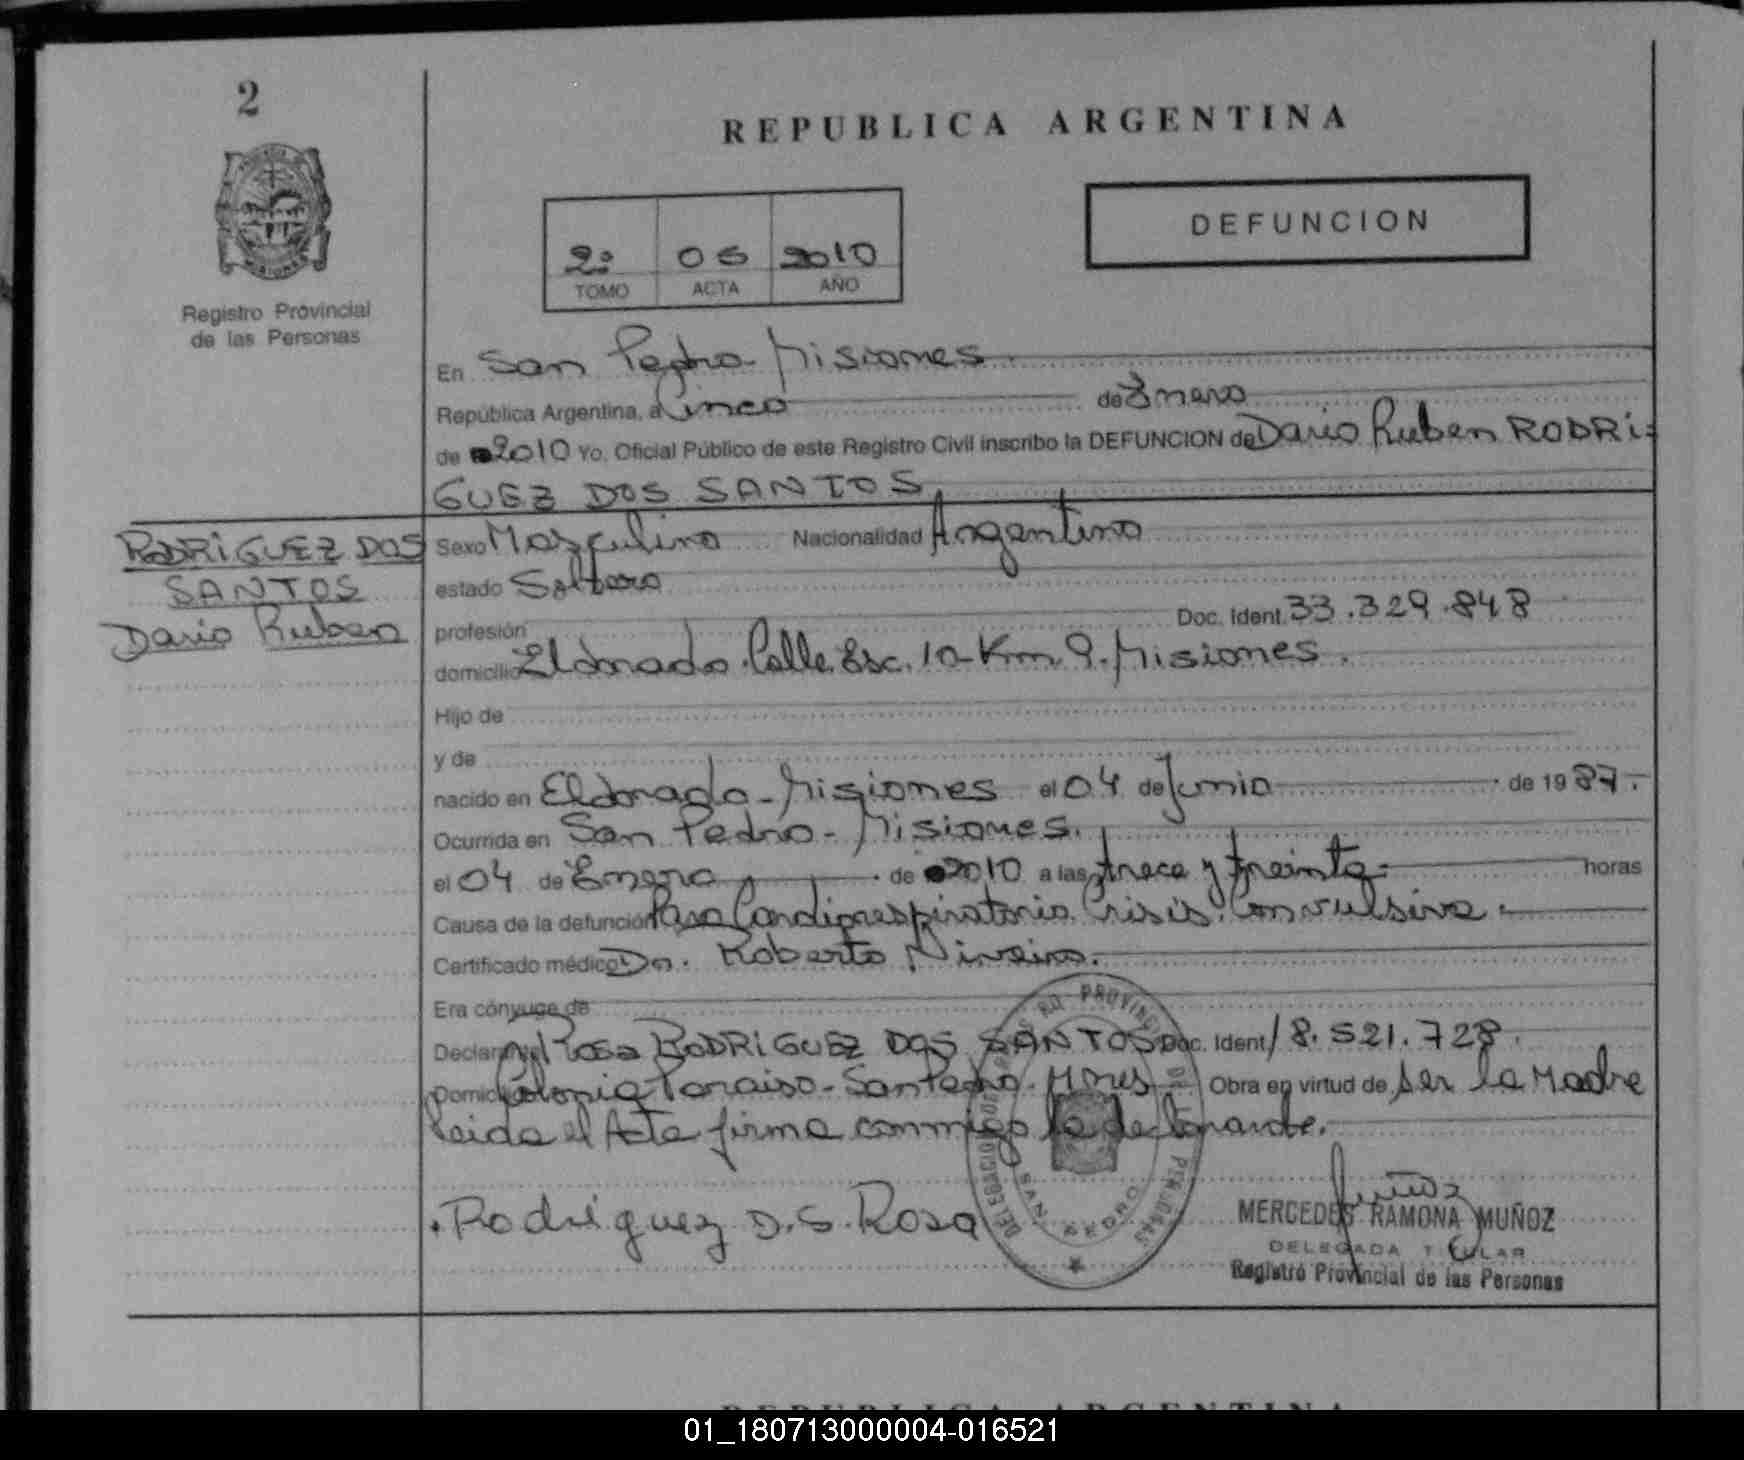 2
REPUBLICA ARGENTINA
DEFUNCION
2º 05 2010
TOMO ACTA AÑO
Registro Provincial
de las Personas
En San Pedro - Misiones
República Argentina, a Cinco de Enero
de 2010 Yo. Oficial Público de este Registro Civil inscribo la DEFUNCION de Dario Ruben RODRI=
GUEZ DOS SANTOS
RODRIGUEZ DOS
SANTOS
Dario Ruben
Sexo Masculino Nacionalidad Argentino
estado Soltero
profesión Doc. Ident. 33.329.848
domicilio Eldorado. Calle Esc. 10 - Km 9. Misiones.
Hijo de
y de
nacido en Eldorado - Misiones el 04 de Junio de 1987.
Ocurrida en San Pedro - Misiones.
el 04 de Enero de 2010 a las trece y treinta horas
Causa de la defunción Paro Cardiorespiratorio. Crisis. Convulsiva.
Certificado médico Dr. Roberto
Era cónyuge de
Rosa RODRIGUEZ DOS SANTOS Doc. Ident 18.521.728.
Colonia Paraiso - San Pedro - Mnes Obra en virtud de ser la Madre
leida el Acta firma conmigo la declarante.
Rodriguez D.S. Rosa
MERCEDES RAMONA MUÑOZ
DELEGADA TITULAR
Registro Provincial de las Personas
REPUBLICA ARGENTINA
01_180713000004-016521